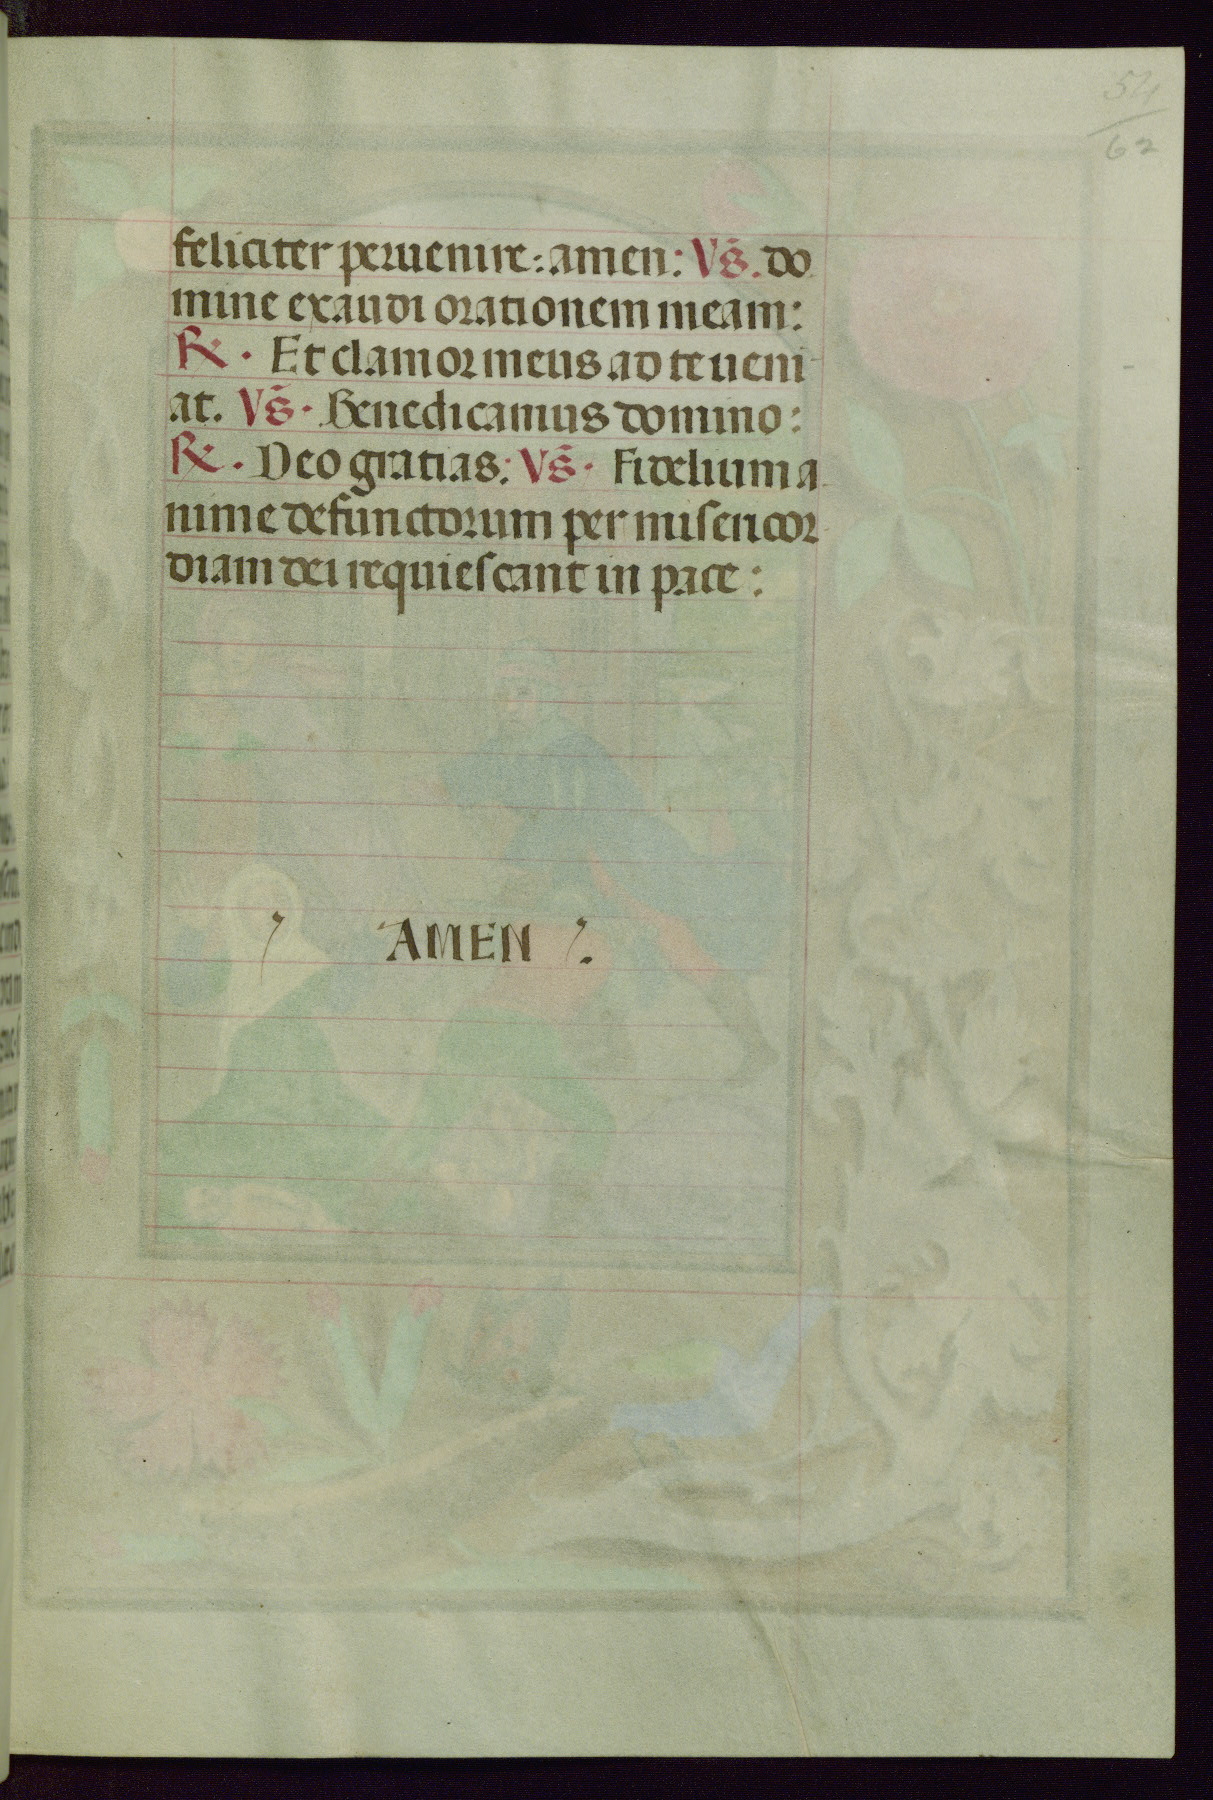 54
62
feliciter peruenire: amen: Vs̃. do
mine exaudi orationem meam:
R⁊. Et clamor meus ad te ueni-
at. Vs̃. Benedicamus domino:
R⁊. Deo gratias: Vs̃. Fidelium a
nime defunctorum per misericor
diam dei requiescant in pace:
AMEN